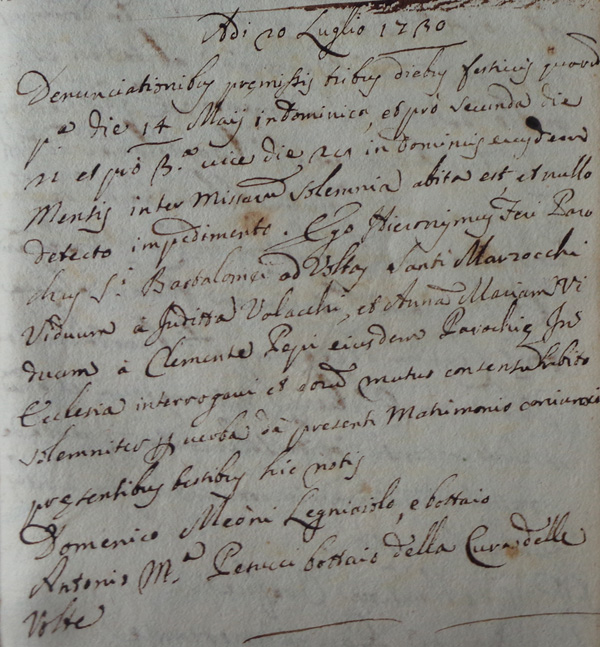 Adi 20 Luglio 1730
Denunciationibus premissis tribus diebus festivis quarũ
p.ª die 14 Maij in Dominica, et pro secunda die
21 et pro 3.ª vice die in Dominicis eiusdem
Mentis inter Missarũ solemnia abita est, et nullo
detecto impedimento. Ego Hieronymus Feri Paro
chus S.ti Bartolomei ad Voltas Santi Marzocchi
Viduum à Juditta Volacchi, et Annã Mariam Vi
duam à Clemente Pepi eiusdem Parochię In
Ecclesia interrogavi et eorũ mutuo consensu habito
solemniter per verba dà presenti Matrimonio coniunxi
pręsentibus testibus hic notis
Domenico Meoni Legniaiolo, e bottaio
Antonio M.ª Petucci bottaio della Cura delle
Volte